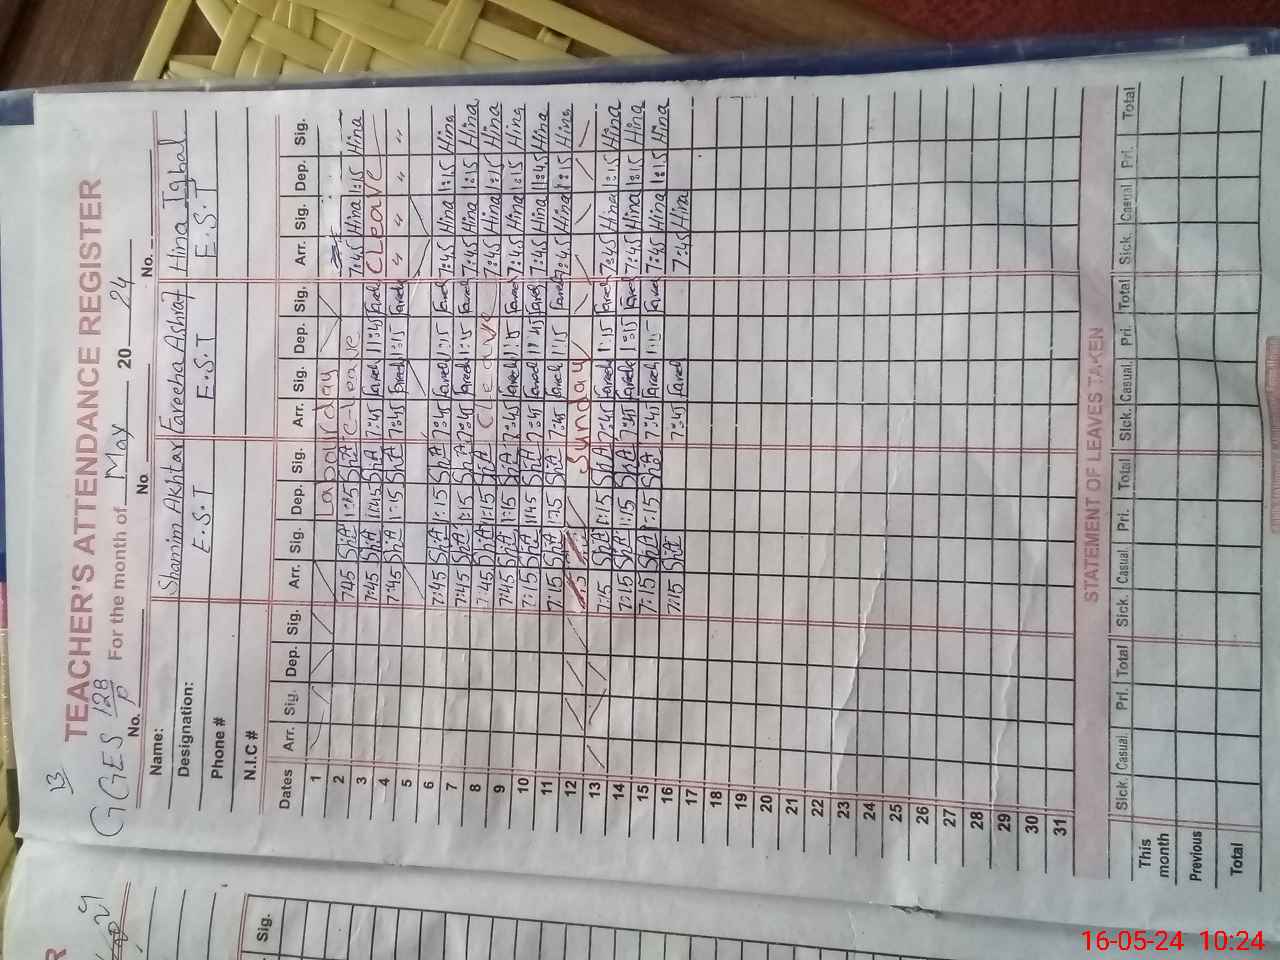 13
GGES 128/P
TEACHER'S ATTENDANCE REGISTER
For the month of May 20 24
No. No. No.
Name: Shamim Akhtar Fareeha Ashraf Hina Iqbal
Designation: E.S.T E.S.T E.S.T
Phone #
N.I.C #
Dates Arr. Sig. Dep. Sig. Arr. Sig. Dep. Sig. Arr. Sig. Dep. Sig. Arr. Sig. Dep. Sig.
1 Labour day
2 7:45 Sh.A 1:15 Sh.A C-leave 7:45 Hina 1:15 Hina
3 7:45 Sh.A 11:45 Sh.A 7:45 Fareeh 11:45 Fareeh C Leave
4 7:45 Sh.A 1:15 Sh.A 7:45 Fareeh 1:15 Fareeh " " " "
5
6 7:45 Sh.A 1:15 Sh.A 7:45 Fareeh 1:15 Fareeh 7:45 Hina 1:15 Hina
7 7:45 Sh.A 1:15 Sh.A 7:45 Fareeh 1:15 Fareeh 7:45 Hina 1:15 Hina
8 7:45 Sh.A 1:15 Sh.A C leave 7:45 Hina 1:15 Hina
9 7:45 Sh.A 1:15 Sh.A 7:45 Fareeh 1:15 Fareeh 7:45 Hina 1:15 Hina
10 7:15 Sh.A 11:45 Sh.A 7:45 Fareeh 11:45 Fareeh 7:45 Hina 11:45 Hina
11 7:15 Sh.A 1:15 Sh.A 7:45 Fareeh 1:15 Fareeh 7:45 Hina 1:15 Hina
12 Sunday
13 7:15 Sh.A 1:15 Sh.A 7:45 Fareeh 1:15 Fareeh 7:45 Hina 1:15 Hina
14 7:15 Sh.A 1:15 Sh.A 7:45 Fareeh 1:15 Fareeh 7:45 Hina 1:15 Hina
15 7:15 Sh.A 1:15 Sh.A 7:45 Fareeh 1:15 Fareeh 7:45 Hina 1:15 Hina
16 7:15 Sh.A 7:45 Fareeh 7:45 Hina
17
18
19
20
21
22
23
24
25
26
27
28
29
30
31
STATEMENT OF LEAVES TAKEN
Sick. Casual. Pri. Total Sick. Casual. Pri. Total Sick. Casual. Pri. Total Sick. Casual. Pri. Total
This month
Previous
Total
Sig.
16-05-24 10:24